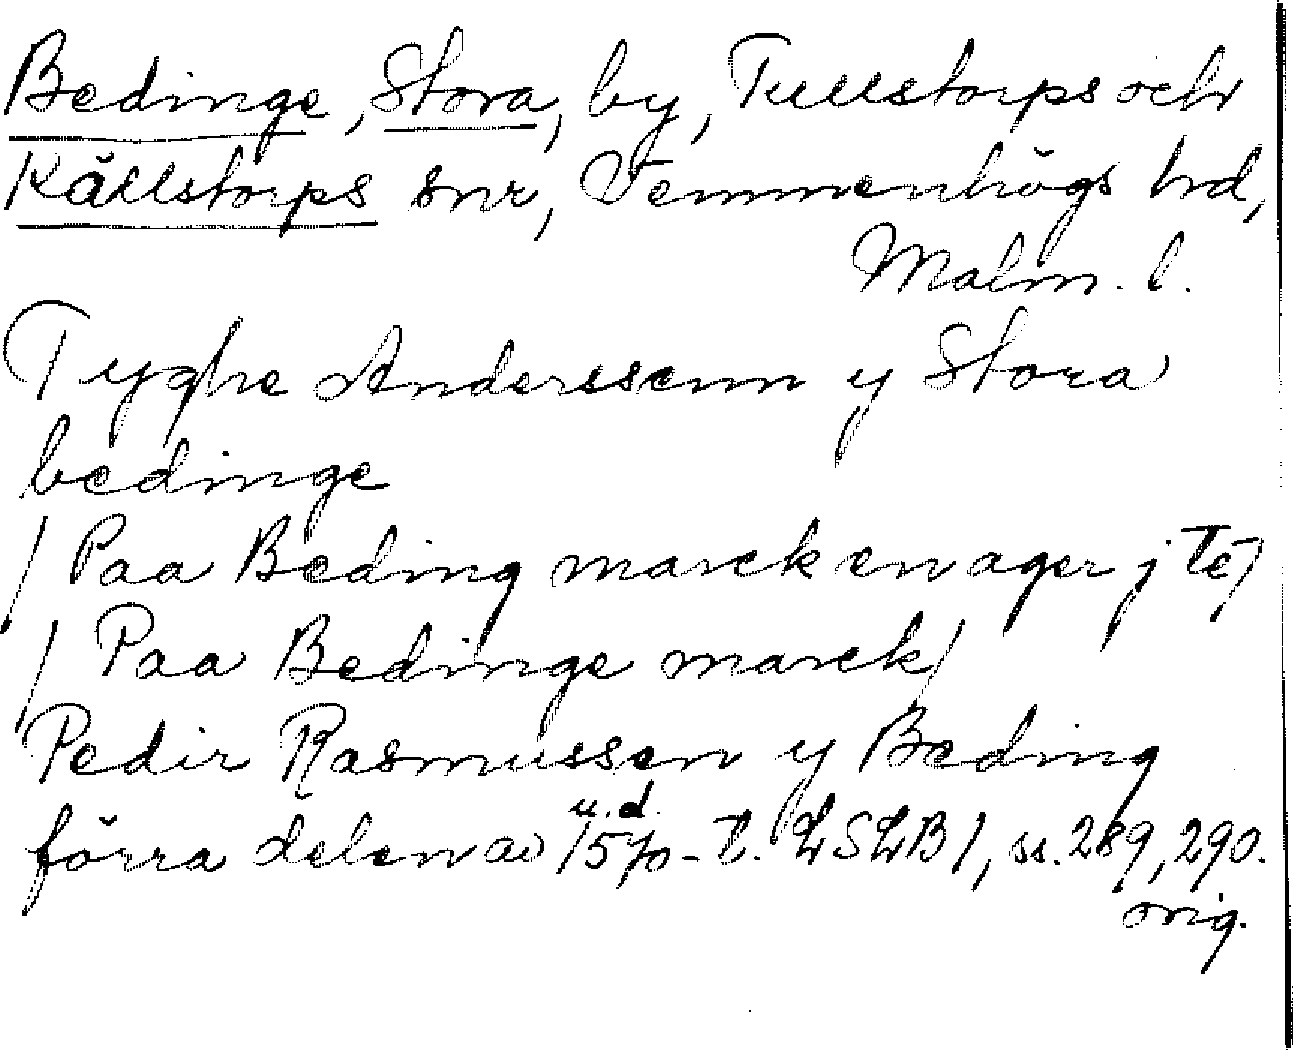 Bedinge, Stora, by, Tullstorps och
Källstorps snr, Vemmenhögs hd,
Malm. l.
Tyghe Anderssenn y Stora
bedinge
/ Paa Beding marck en ager j te /
/ Paa Bedinge marck /
Pedir Rasmussen y Beding
u. d.
förra delen av 15 - t. LSLB 1, ss. 289, 290.
orig.